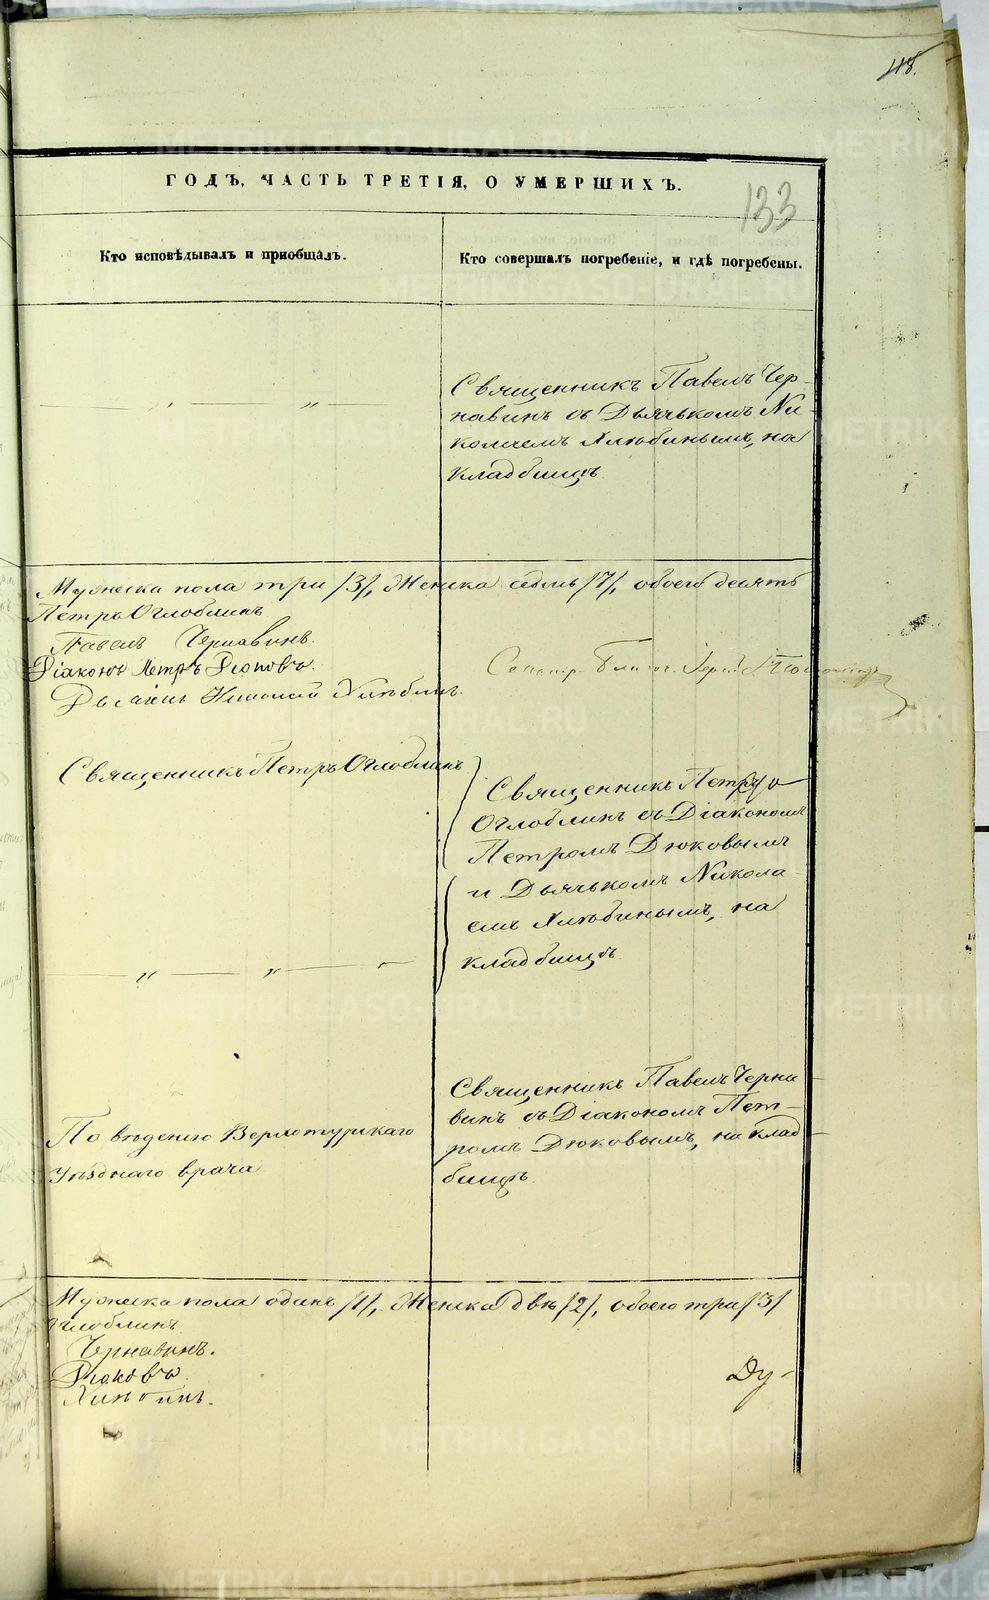 118.
133
ГОДЪ, ЧАСТЬ ТРЕТІЯ, О УМЕРШИХЪ.
Кто исповѣдывалъ и пріобщалъ.
Кто совершалъ погребеніе, и гдѣ погребены.
Священникъ Павелъ Чер-
навинъ съ Дьячькомъ Ни-
колаемъ Хлѣбинымъ, на
кладбищѣ
Мужеска пола три /3/, Женска седмь /7/, обоего десять
Петръ Оглоблинъ
Павелъ Чернавинъ.
Діаконъ Петръ Дюковъ.
Николай Хлѣбинъ.
Священникъ Петръ Оглоблинъ
Священникъ Петръ
Оглоблинъ съ Діакономъ
Петромъ Дюковымъ
и Дьячькомъ Никола-
емъ Хлѣбинымъ, на
кладбищѣ
По вѣдѣнію Верхотурскаго
Уѣзднаго врача
Священникъ Павелъ Черна-
винъ съ Діакономъ Пет-
ромъ Дюковымъ, на клад-
бищѣ.
Мужеска пола одинъ /1/, Женска двѣ /2/, обоего три /3/
Оглоблинъ
Чернавинъ.
Дюковъ.
Хлѣбинъ.
Ду-
METRIKI.GASO-URAL.RU